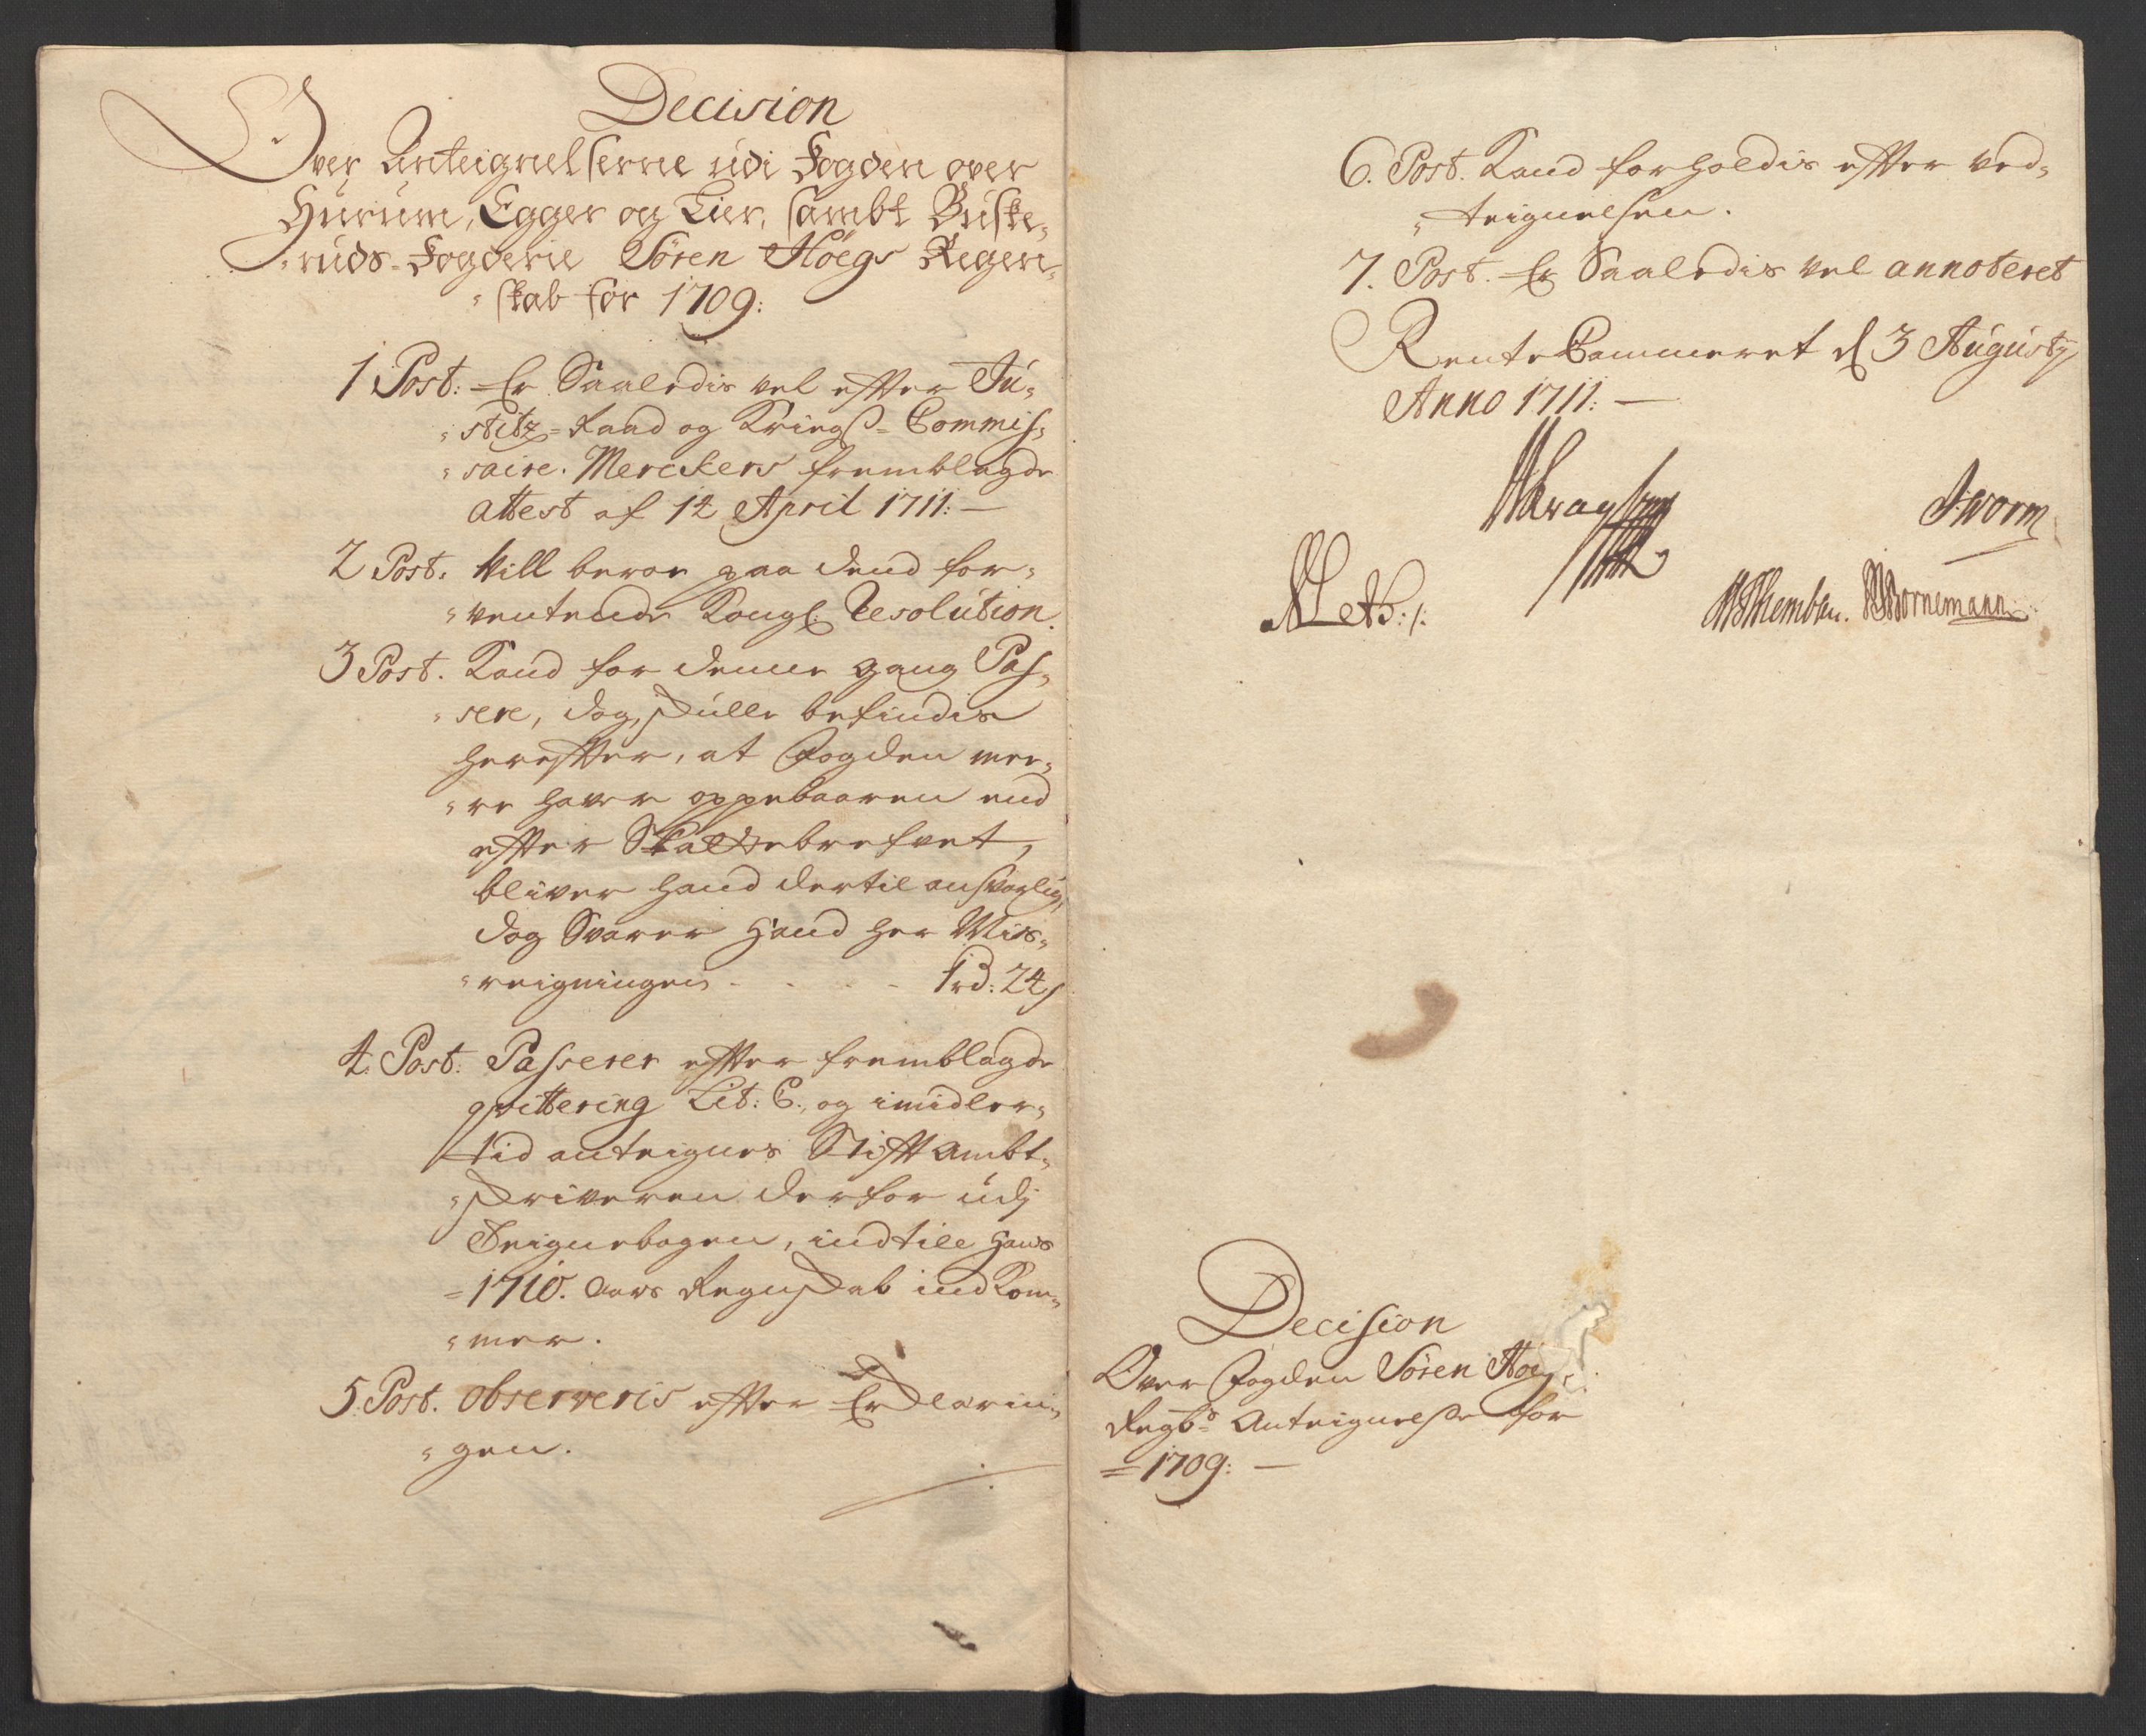 Decision
Over Anteignelserne udi Fogden over
Hurum, Egger og Lier, sambt Buske-
-ruds-Fogderie Sören Höegs Regen-
-skab for 1709:
1 Post: Er Saaledis vel efter Ju-
-stitz-Raad og Kriegs-Commis-
-saire Merckers fremblagde
Attest af 12 April 1711:
2 Post: Vill beroe paa dend for-
-ventende Kongl: Resolution.
3 Post. Kand for denne gang Pas-
-sere, dog, skulle befindis
herefter, at Fogden mee-
-re haver oppebaaren end
efter Skattebrefvet,
bliver hand dertil ansvarlig,
dog Svarer hand her Mis-
-reigningen - - - - 1 rd: 24 s
4. Post. Passerer efter fremblagde
qvittering Lit: C., og imidler-
tid anteignes Stiftambt-
-skriveren derfor udj
Teignebogen, indtill hans
-1710. Aars Regnskab indkom-
-mer.
5. Post. observeris efter Erklærin-
-gen.
6. Post. Kand forholdis efter ved-
-teignelsen.
7. Post. Er Saaledis vel annoteret
RenteCammeret d 3 Augustj
Anno 1711:
J Worm
Bornemann
Decision
Over Fogden Sören Höeg
Regbs Anteignelse for
=1709: